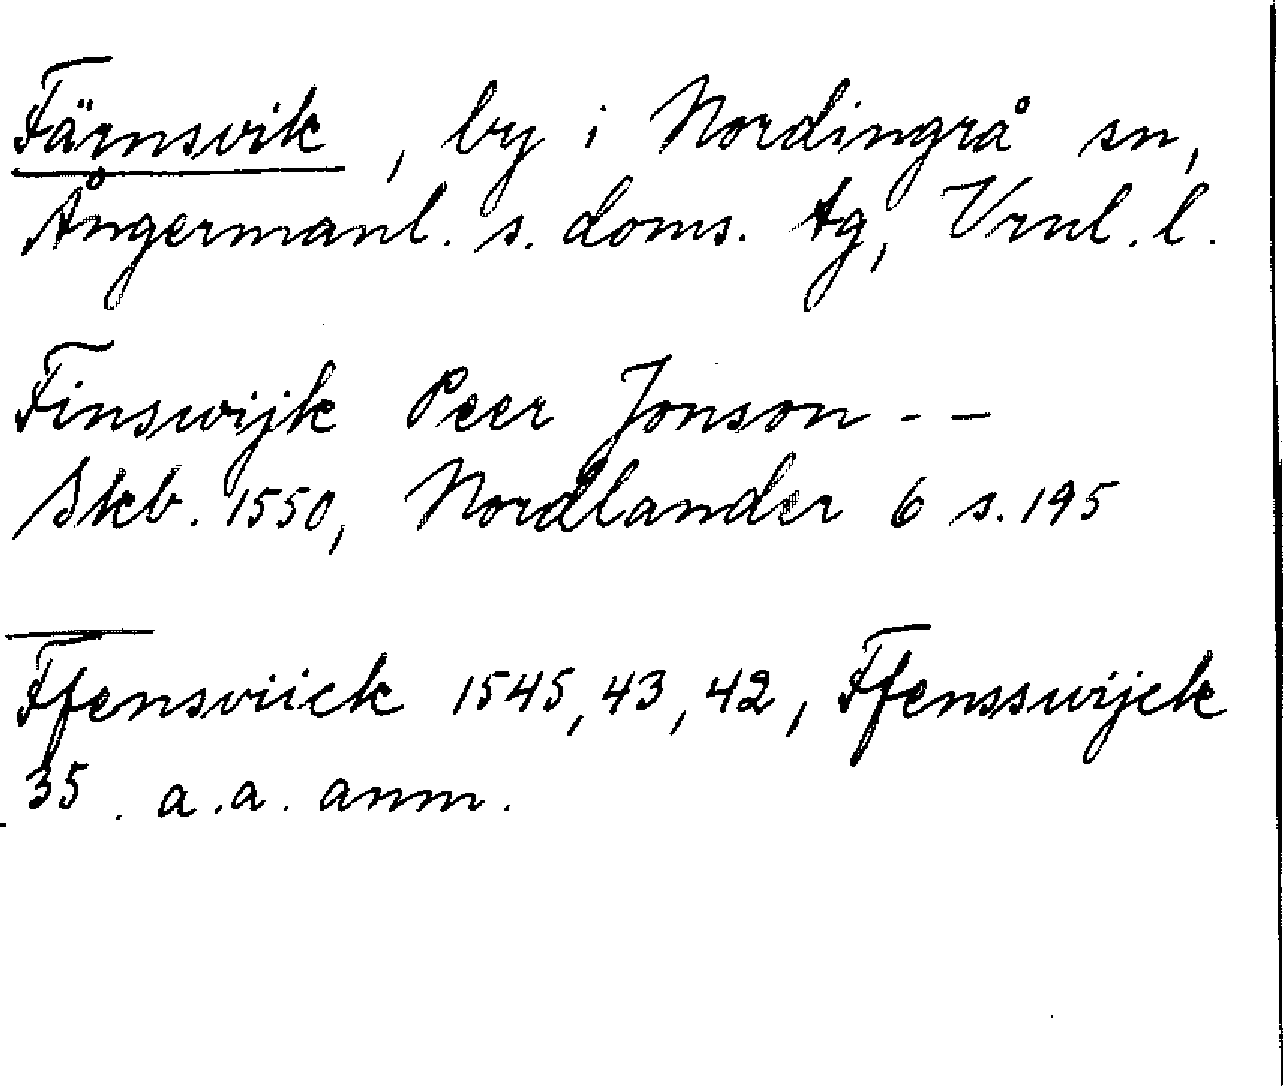 Färnsvik, by i Nordingrå sn,
Ångermanl. s. doms. tg, Vrnl. l.
Finswijk Peer Jonson - -
Skb. 1550, Nordlander 6 s. 195
Ffensviick 1545, 43, 42, Ffensswijck
35. a.a. anm.